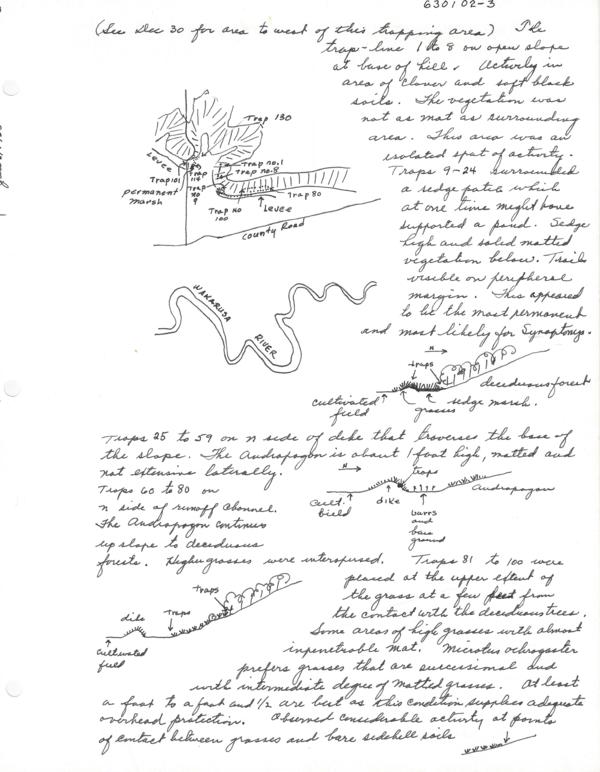 630102-3
(See Dec 30 for area to west of this trapping area) The
trap-line 1 to 8 on open slope
at base of hill. Activity in
area of clover and soft black
soils. The vegetation was
not as mat as surrounding
area. This area was an
isolated spot of activity.
Traps 9-24 surrounded
a sedge patch which
at one time might have
supported a pond. Sedge
high and solid matted
vegetation below. Trails
visible on peripheral
margin. This appeared
to be the most permanent
and most likely for Synaptomys.
Trap 130
Levee
Trap 101
Trap 114
Trap no. 1
Trap no. 8
permanent
marsh
Trap no 9
Trap 80
Trap No
100
Levee
County Road
WAKARUSA
RIVER
N
traps
deciduous forest
cultivated
field
grasses
sedge marsh.
Traps 25 to 59 on n side of dike that traverses the base of
the slope. The Andropogon is about 1 foot high, matted and
not extensive laterally.
Traps 60 to 80 on
n side of runoff channel.
The Andropogon continues
up slope to deciduous
forests. Higher grasses were interspursed.
N
traps
Andropogon
Cult.
field
dike
and
bare
ground
Traps 81 to 100 were
placed at the upper extent of
the grass at a few feet from
the contact with the deciduous trees.
Some areas of high grasses with almost
inpenetrable mat. Microtus ochrogaster
prefers grasses that are successional and
with intermediate degree of matted grasses. At least
a foot to a foot and 1/2 are best as this condition supplies adequate
overhead protection. Observed considerable activity at points
of contact between grasses and bare sidehill soils
Traps
Traps
dike
cultivated
field